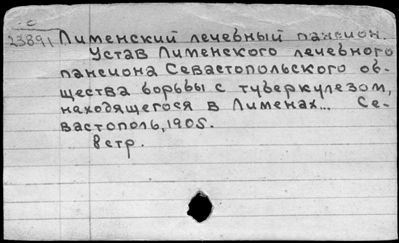 с
23891 Лименский лечебный пансион.
Устав Лименского лечебного
пансиона Севастопольского об-
щества борьбы с туберкулезом,
находящегося в Лименах... Се-
вастополь, 1905.
8 стр.